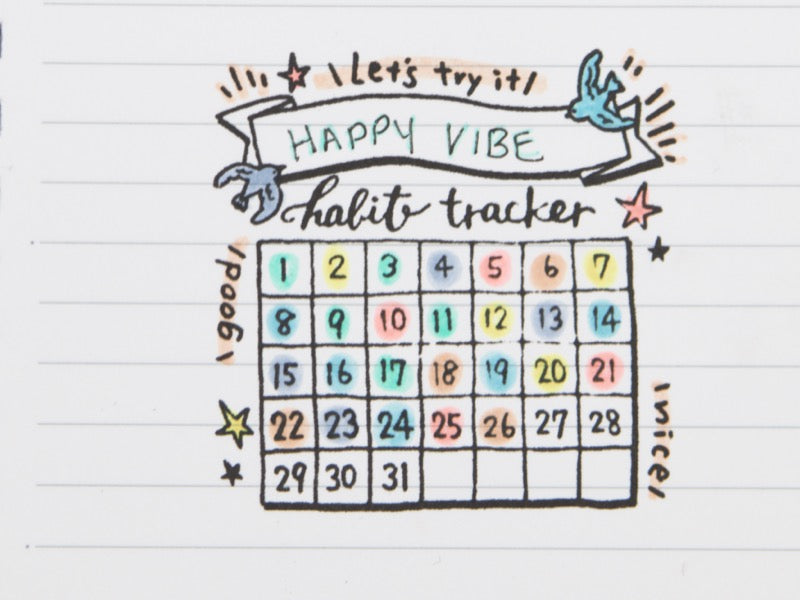 \Let's try it/
HAPPY VIBE
habit tracker
\good/
1 2 3 4 5 6 7
8 9 10 11 12 13 14
15 16 17 18 19 20 21
22 23 24 25 26 27 28
29 30 31
\nice/